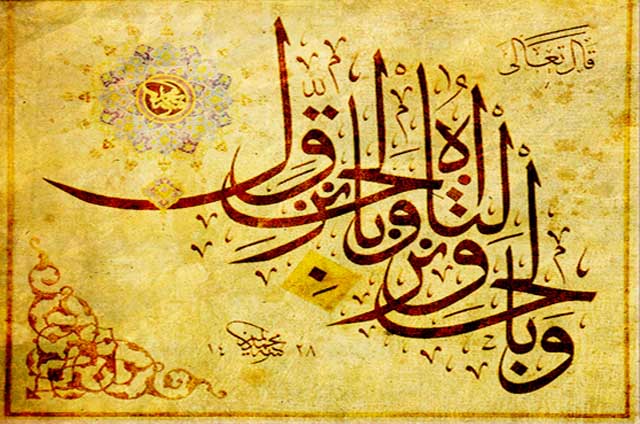 قال تعالى
وبالحق أنزلناه وبالحق نزل
١٤٢٨